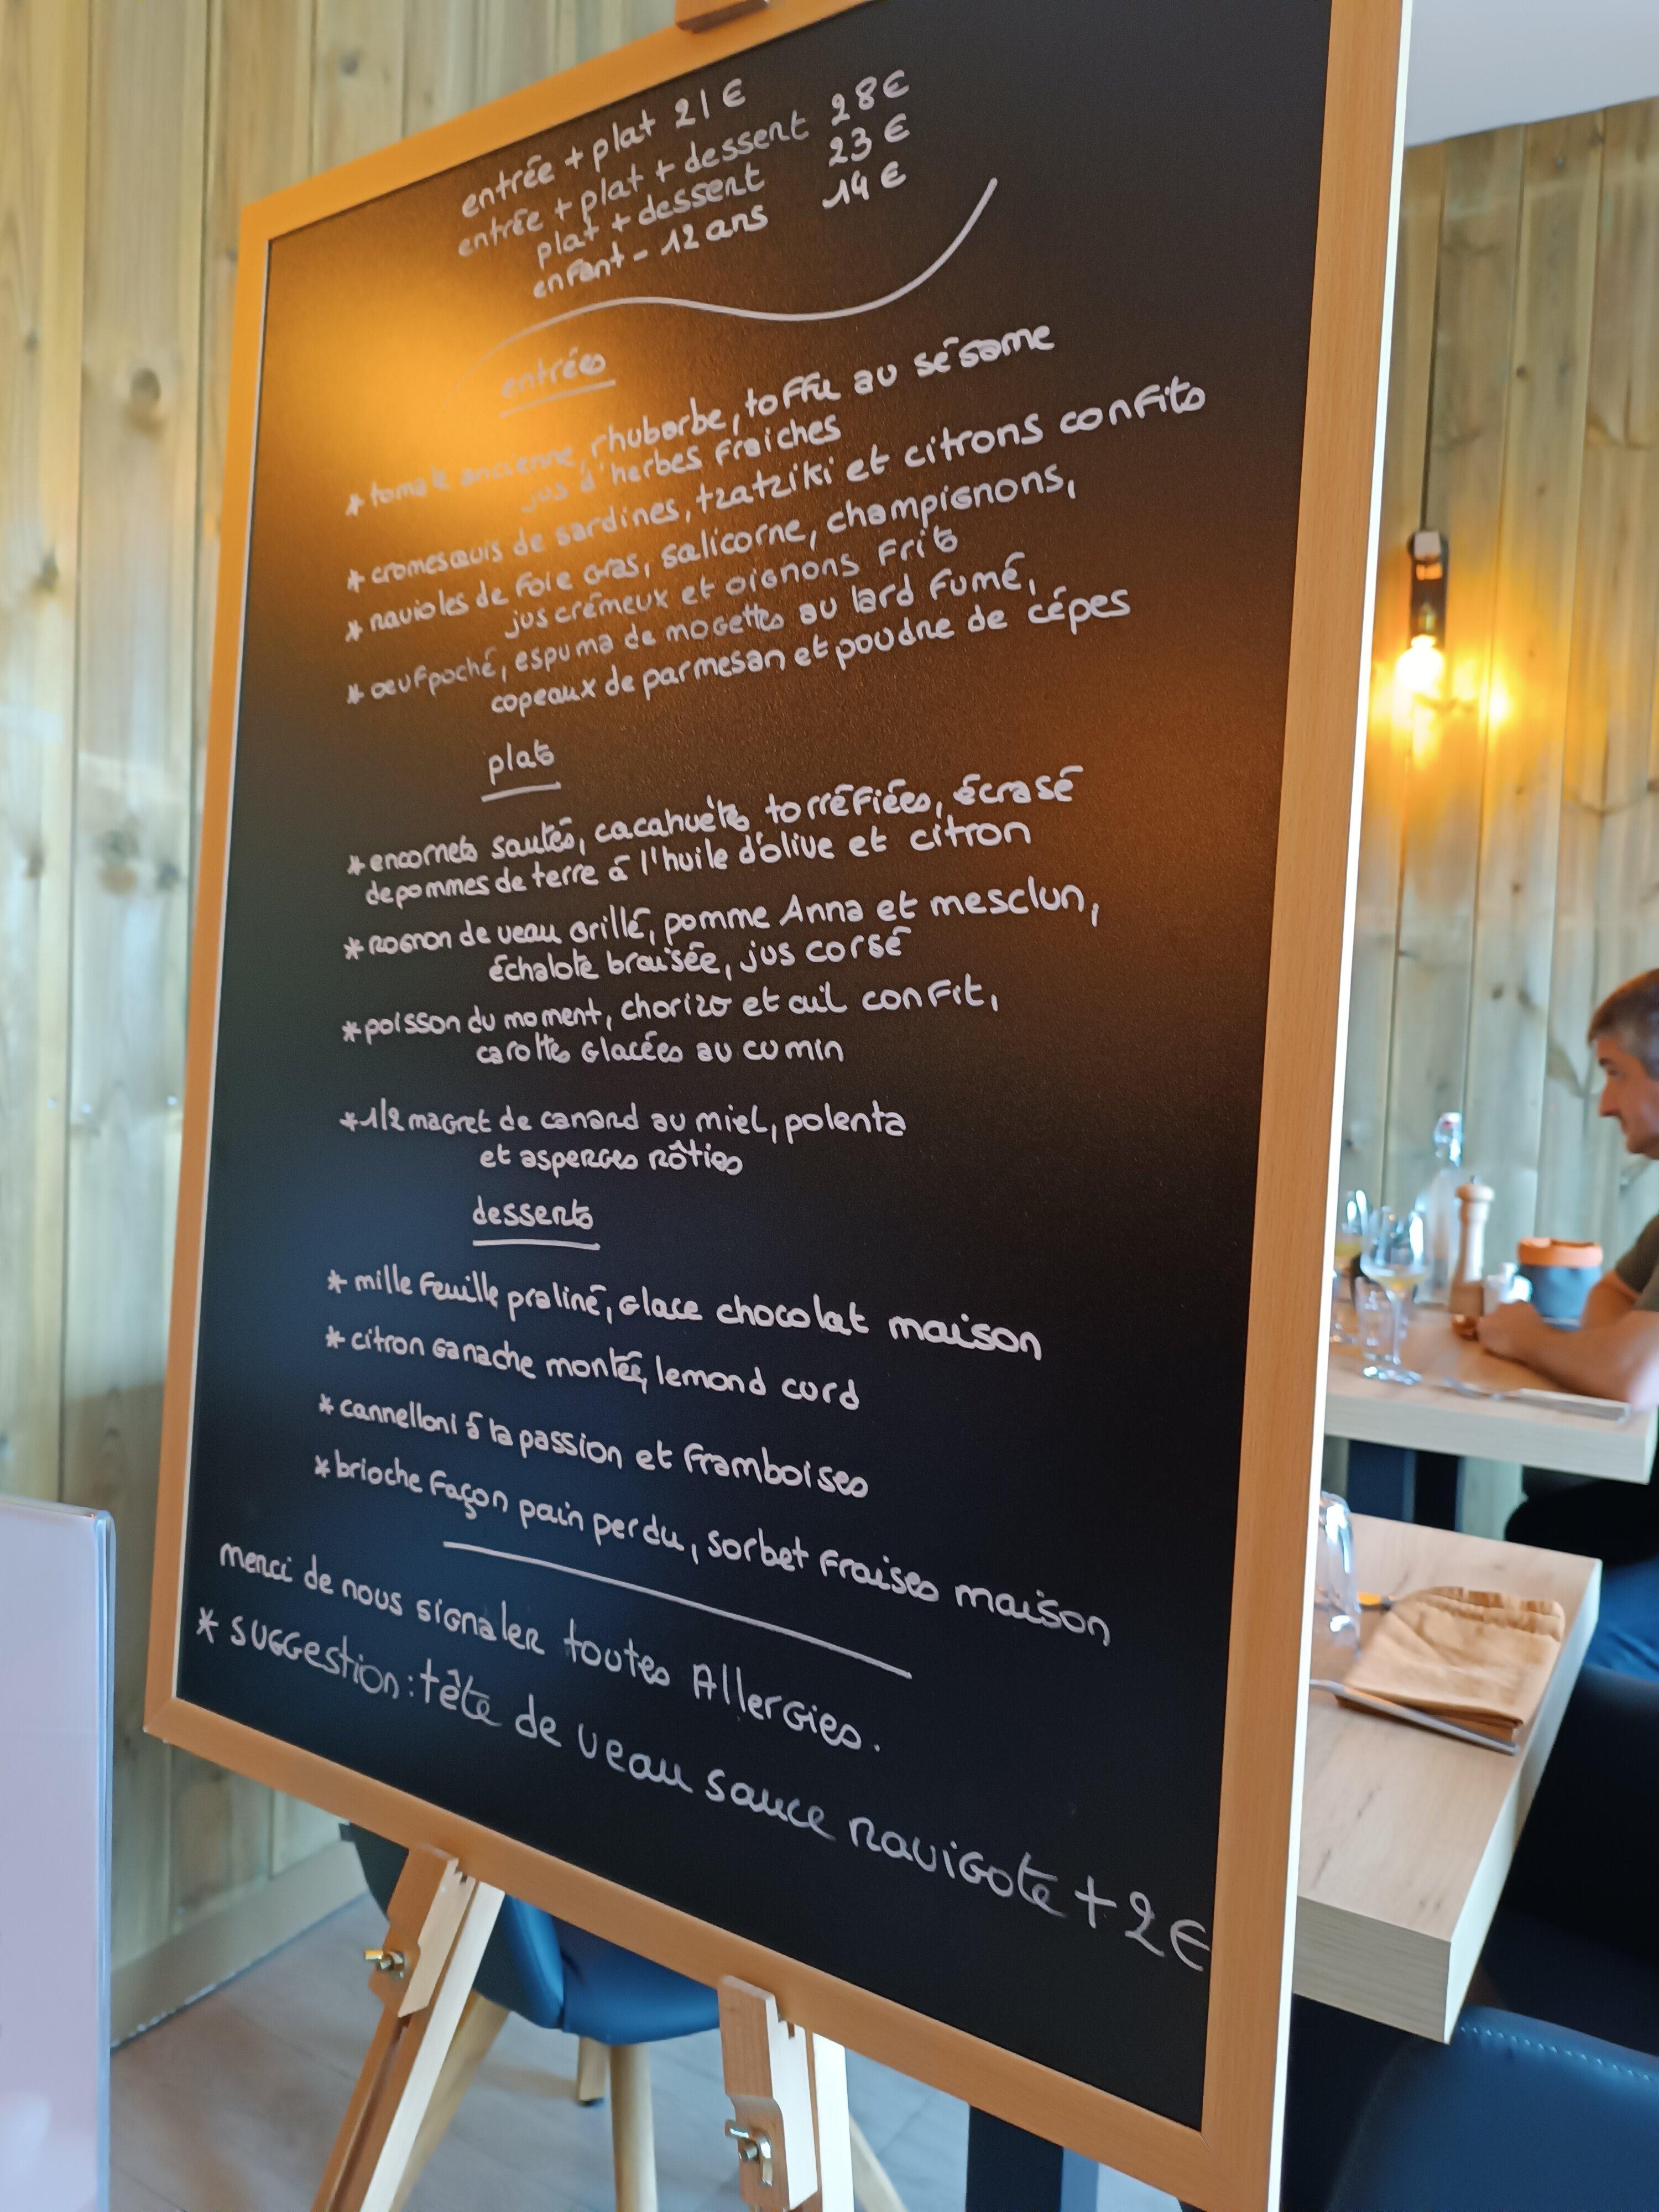 entrée + plat 21 €
entrée + plat + dessert 28 €
plat + dessert 23 €
enfant - 12 ans 14 €
entrées
* tomate ancienne, rhubarbe, toffu au sésame
jus d'herbes fraiches
* cromesquis de sardines, tzatziki et citrons confits
* ravioles de foie gras, salicorne, champignons,
jus crémeux et oignons frits
* oeuf poché, espuma de mogettes au lard fumé,
copeaux de parmesan et poudre de cépes
plats
* encornets sautés, cacahuètes torréfiées, écrasé
de pommes de terre à l'huile d'olive et citron
* rognon de veau grillé, pomme Anna et mesclun,
échalote braisée, jus corsé
* poisson du moment, chorizo et ail confit,
carottes glacées au cumin
* 1/2 magret de canard au miel, polenta
et asperges rôties
desserts
* mille feuille praliné, glace chocolat maison
* citron ganache montée, lemond curd
* cannelloni à la passion et framboises
* brioche façon pain perdu, sorbet fraises maison
merci de nous signaler toutes Allergies.
* suggestion: tête de veau sauce ravigote + 2€